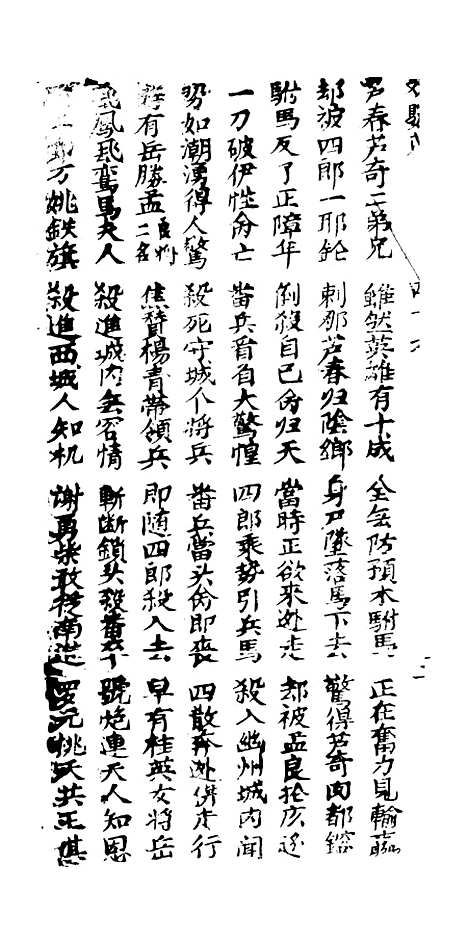 芦春芦奇二弟兄 雖然英雄有十成 全無防預木駙馬 正在奮力見輸贏
却被四郎一耶鎗 刺那芦春归陰鄉 身尸墜落馬下去 驚得芦奇肉都鎔
駙馬反了正障华 倒殺自己份归天 當時正欲來迯走 却被孟良抡斧
一刀破伊性命亡 番兵首自大驚惶 四郎乘势引兵馬 殺入幽州城内闹
势如潮湧得人驚 殺死守城个將兵 番兵當头份即丧 四散奔迯併走行
有岳勝孟良將二名 焦賛楊青帶領兵 即随四郎殺入去 早有桂英女將岳
飛鳳飛鸞馬夫人 殺進城内無容情 斬断鎖头殺番个 號炮連天人知恩
万姚鉄旗 殺進西城人知机 謝再柴敢南 罗元桃沃共王祺